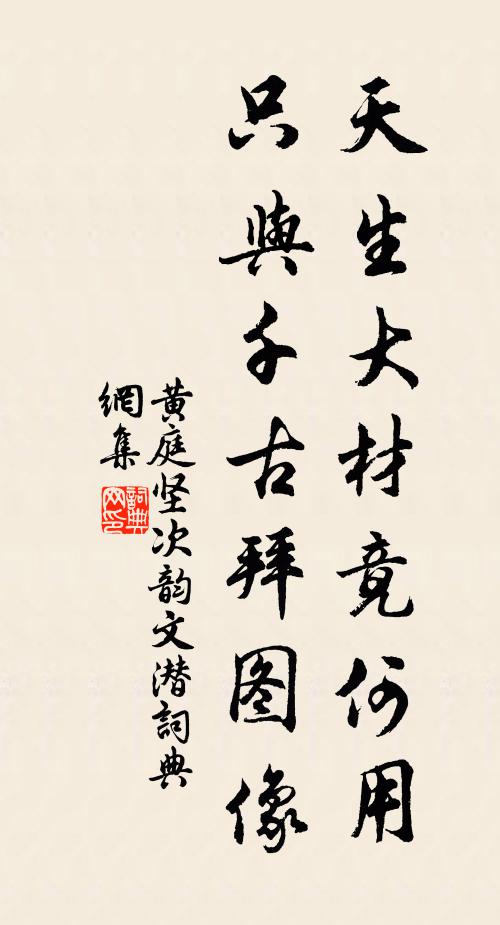 天生大材竟何用
只與千古拜图像
黄庭坚次韵文潜詞典
網集
詞典网印